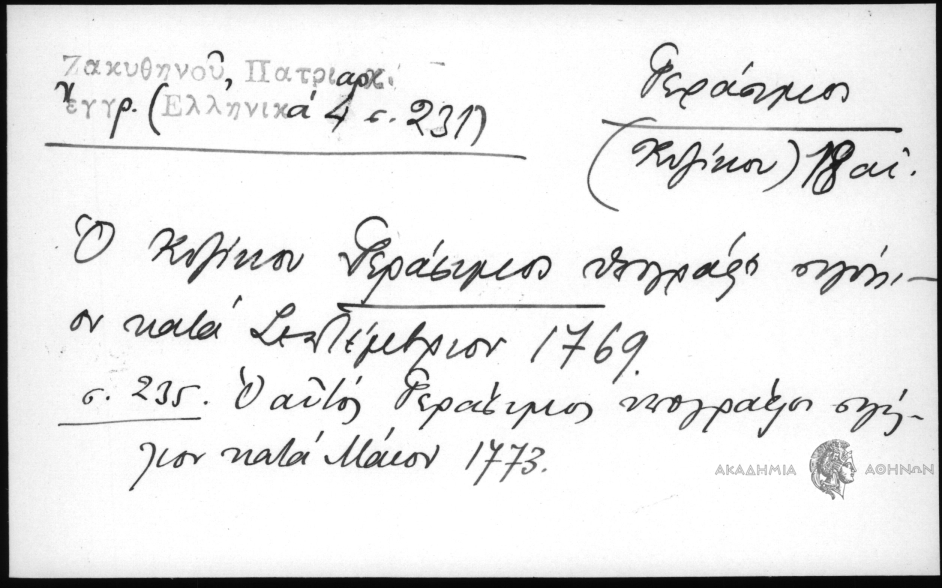 Ζακυθηνοῦ, Πατριαρχ.
εγγρ. (Ἑλληνικά 4 σ. 231)
Γεράσιμος
(Κυζίκου) 18 αἰ.
Ὁ Κυζίκου Γεράσιμος ὑπογράφει σιγίλλι-
ον κατά Σεπτέμβριον 1769.
σ. 235. Ὁ αὐτός Γεράσιμος ὑπογράφει σιγίλ-
λιον κατά Μάιον 1773.
ΑΚΑΔΗΜΙΑ ΑΘΗΝΩΝ